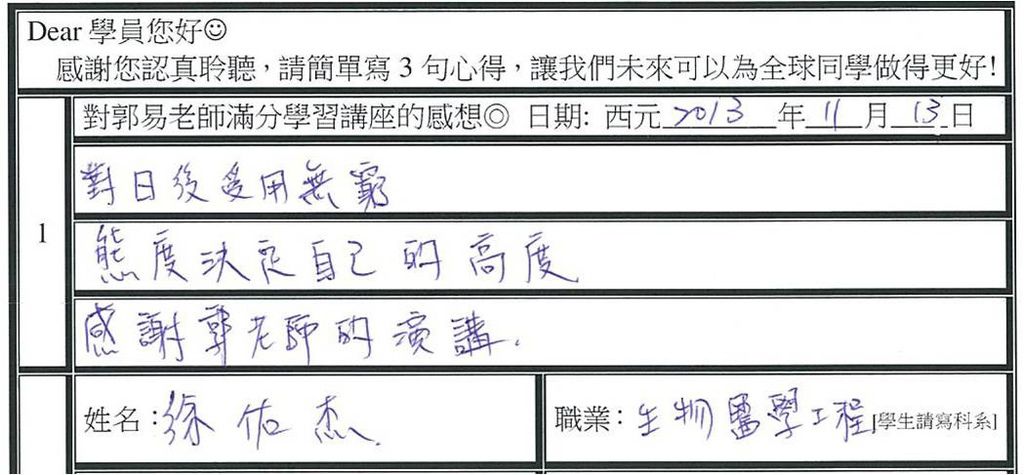 Dear 學員您好☺
感謝您認真聆聽，請簡單寫 3 句心得，讓我們未來可以為全球同學做得更好!
對郭易老師滿分學習講座的感想◎ 日期: 西元 2013 年 11 月 13 日
1
對日後受用無窮
態度決定自己的高度
感謝郭老師的演講.
姓名:徐佑杰
職業: 生物醫學工程[學生請寫科系]